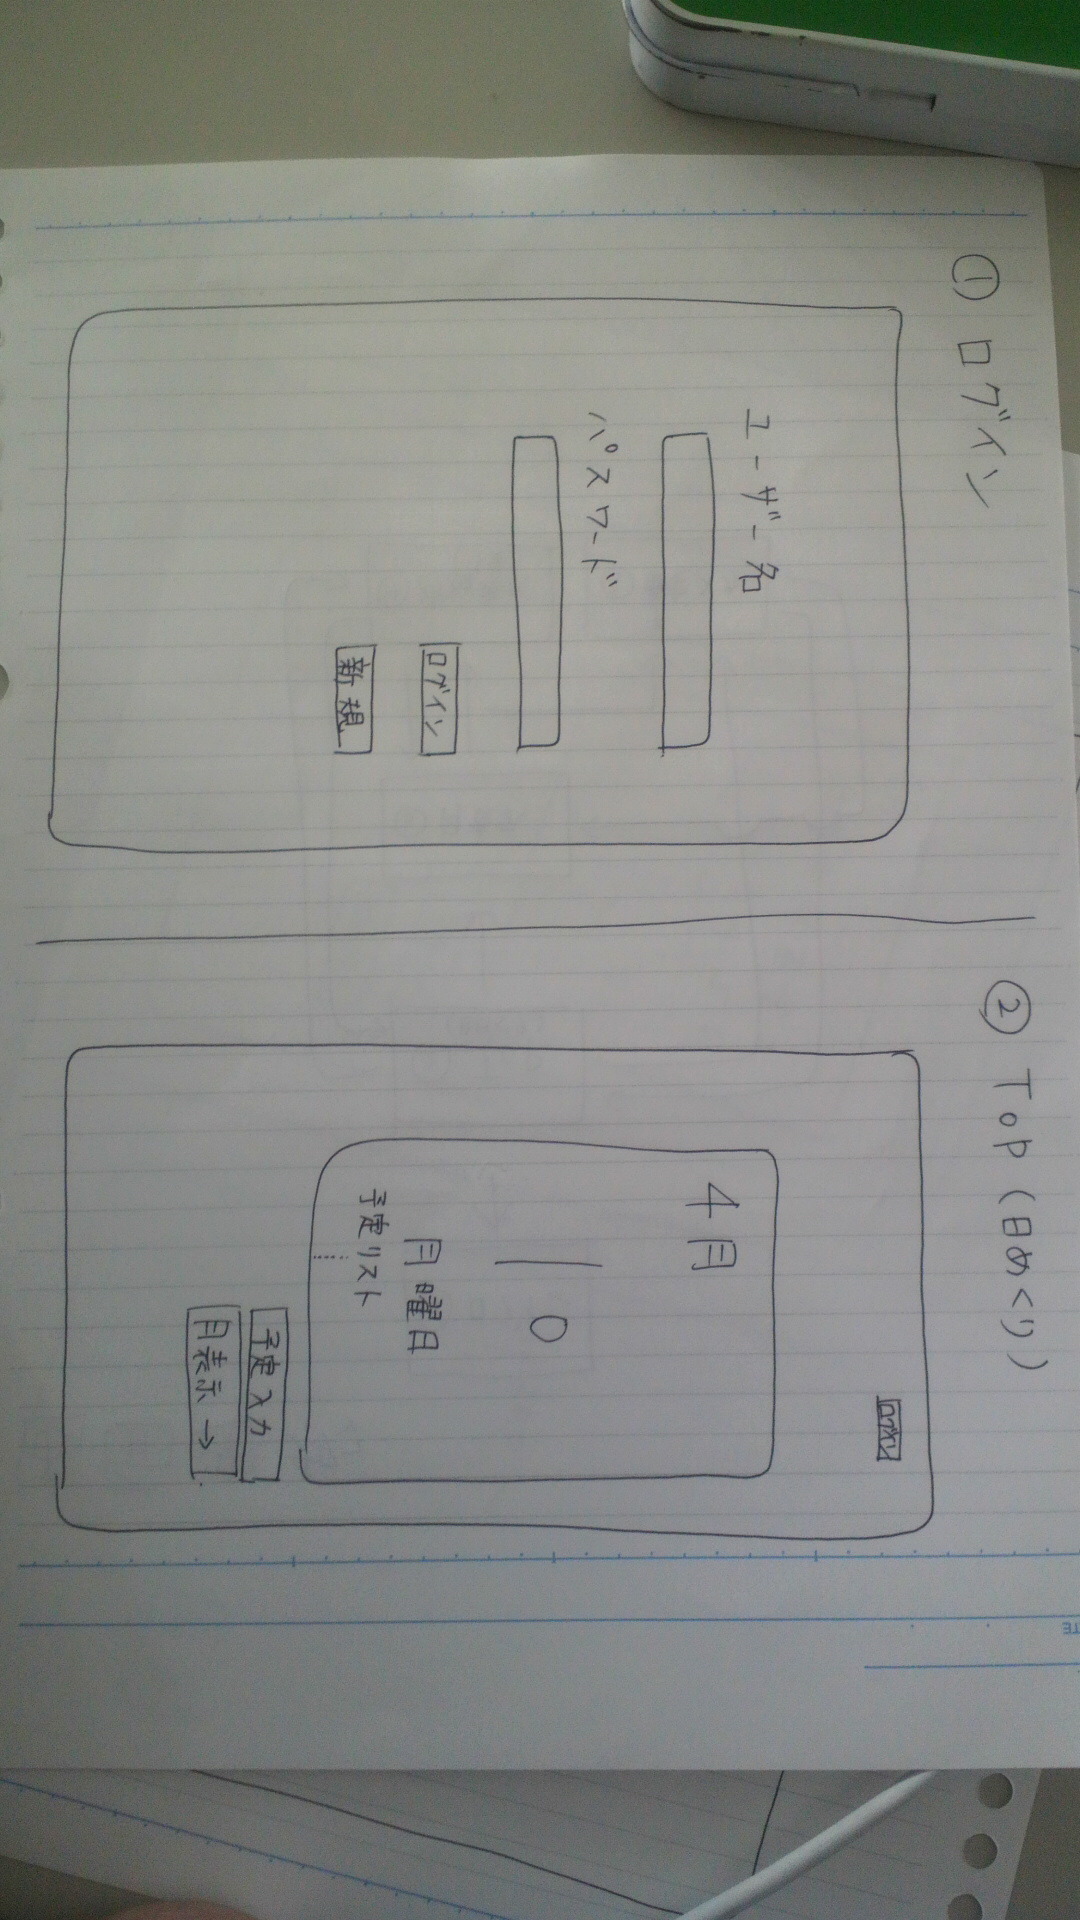 ① ログイン
ユーザー名
パスワード
ログイン
新規
② Top (日めくり)
ログイン
4月
10
月曜日
予定リスト
予定入力
月表示→